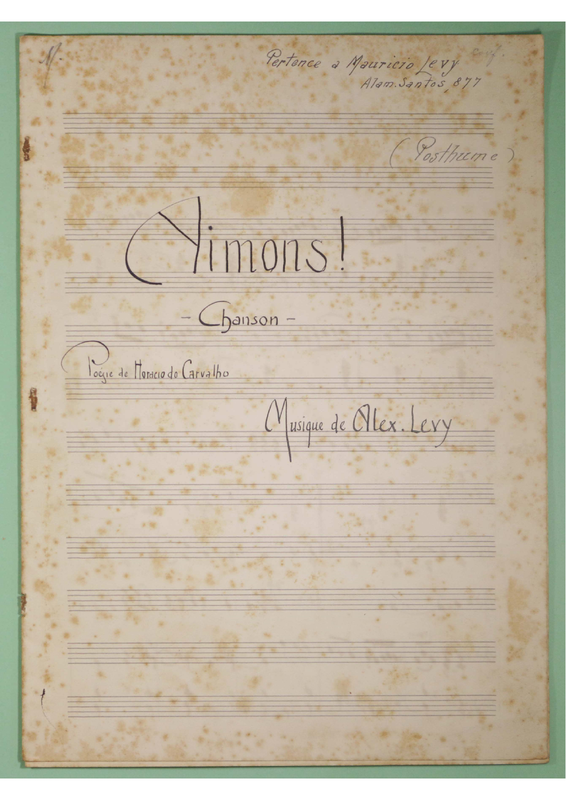 Pertence a Mauricio Levy
Alam. Santos 877
(Posthume)
Aimons!
- Chanson -
Poesie de Horacio de Carvalho
Musique de Alex. Levy